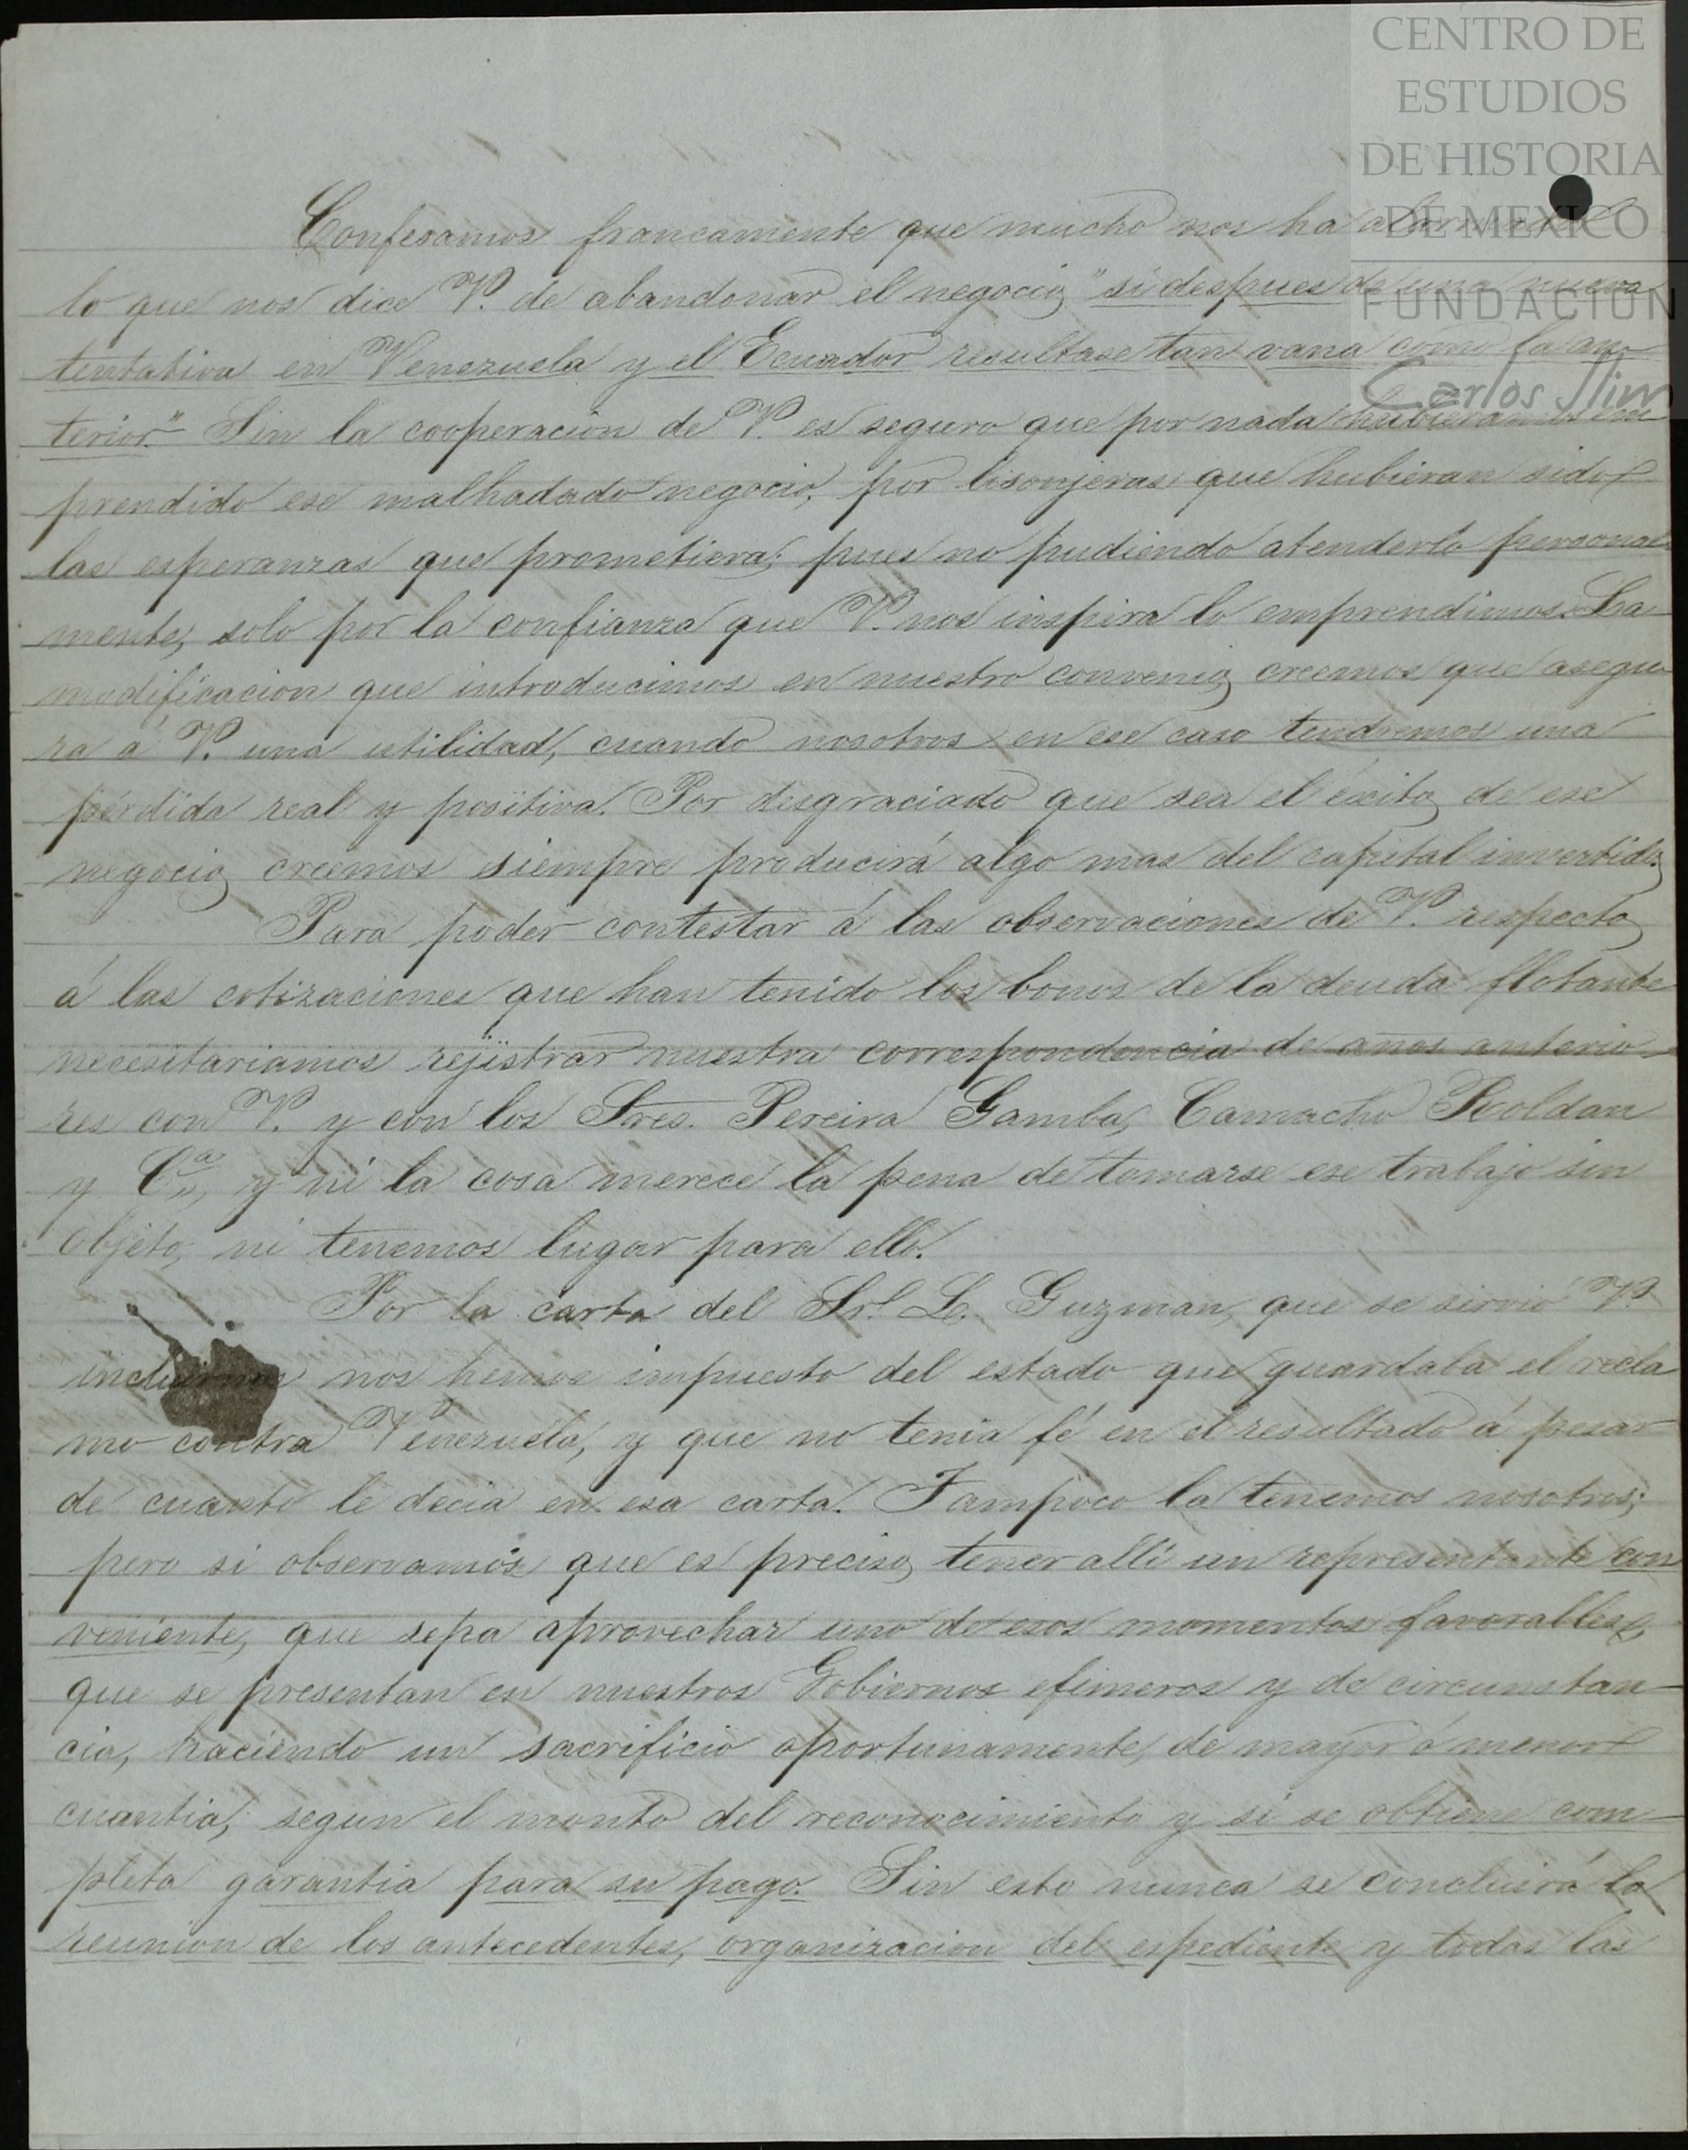 CENTRO DE
ESTUDIOS
DE HISTORIA
DE MEXICO
FUNDACION
Carlos Slim
Confesamos francamente que mucho nos ha alarmado
lo que nos dice V. de abandonar el negocio, "si despues de una nueva
tentativa en Venezuela y el Ecuador resultase tan vana como la an-
terior." Sin la cooperacion de V. es seguro que por nada hubieramos em
prendido ese malhadado negocio, por lisonjeras que hubieran sido
las esperanzas que prometiera; pues no pudiendo atenderlo personal
mente, solo por la confianza que V. nos inspira lo emprendimos. La
modificacion que introducimos en nuestro convenio, creemos que asegu
ra á V. una utilidad, cuando nosotros en ese caso tendremos una
pérdida real y positiva. Por desgraciado que sea el éxito, de ese
negocio, creemos siempre producirá algo mas del capital invertido.
Para poder contestar á las observaciones de V. respecto,
á las cotizaciones que han tenido los bonos de la deuda flotante
necesitariamos rejistrar nuestra correspondencia de años anterio-
res con V. y con los Sres. Pereira Gamba, Camacho Roldan
y Cª, y ni la cosa merece la pena de tomarse ese trabajo sin
objeto, ni tenemos lugar para ello.
Por la carta del Sr. L. Guzman, que se sirvió V.
incluirnos nos hemos impuesto del estado que guardaba el recla
mo contra Venezuela, y que no tenia fé en el resultado á pesar
de cuanto le decia en esa carta. Tampoco la tenemos nosotros;
pero si observamos que es preciso, tener alli un representante con
veniente, que sepa aprovechar uno de esos momentos favorables,
que se presentan en nuestros Gobiernos efimeros y de circunstan-
cia, haciendo un sacrificio oportunamente, de mayor ó menor
cuantia, segun el monto del reconocimiento y si se obtiene com-
pleta garantia para su pago. Sin esto nunca se concluirá la
reunion de los antecedentes, organizacion del espediente y todas las